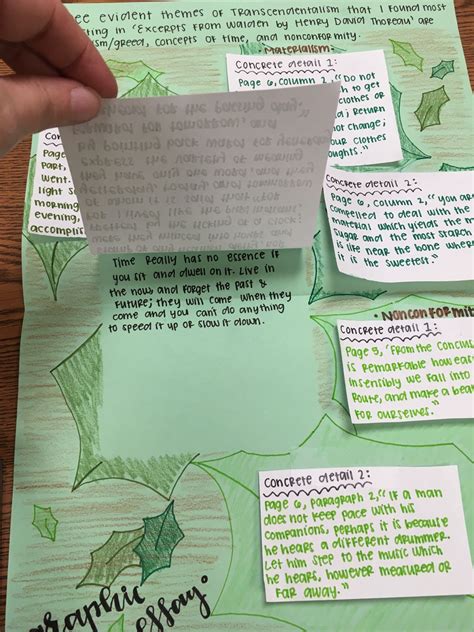 ee evident themes of Transcendentalism that I found most
ting in "Excerpts from Walden by Henry David Thoreau" are
ism/greed, concepts of time, and nonconformity.
Materialism
Concrete detail 1:
Page 6, Column 2, "Do not
h to get
clothes or
d; Return
not change;
our clothes
oughts."
Concrete detail 2:
Page 6, column 2, "you are
compelled to deal with the
material which yields the
sugar and the most starch
is life near the bone where
it is the sweetest."
Conc
Page
Part,
went
light s
morning
evening,
accomplis
Time really has no essence if
you sit and dwell on it. Live in
the now and forget the past &
future; they will come when they
come and you can't do anything
to speed it up or slow it down.
•Nonconformit
Concrete detail 1:
Page 5, "From the Conclus
is remarkable how eas
insensibly we fall into
Route, and make a bea
for ourselves."
Concrete detail 2:
Page 6, Paragraph 2, "If a man
does not keep pace with his
companions, perhaps it is because
he hears a different drummer.
Let him step to the music which
he hears, however measured or
far away."
graphic
essay.